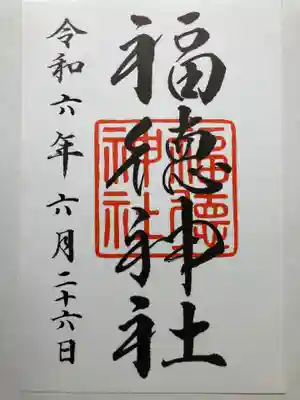 福徳神社
福德
神社
令和六年六月二十六日